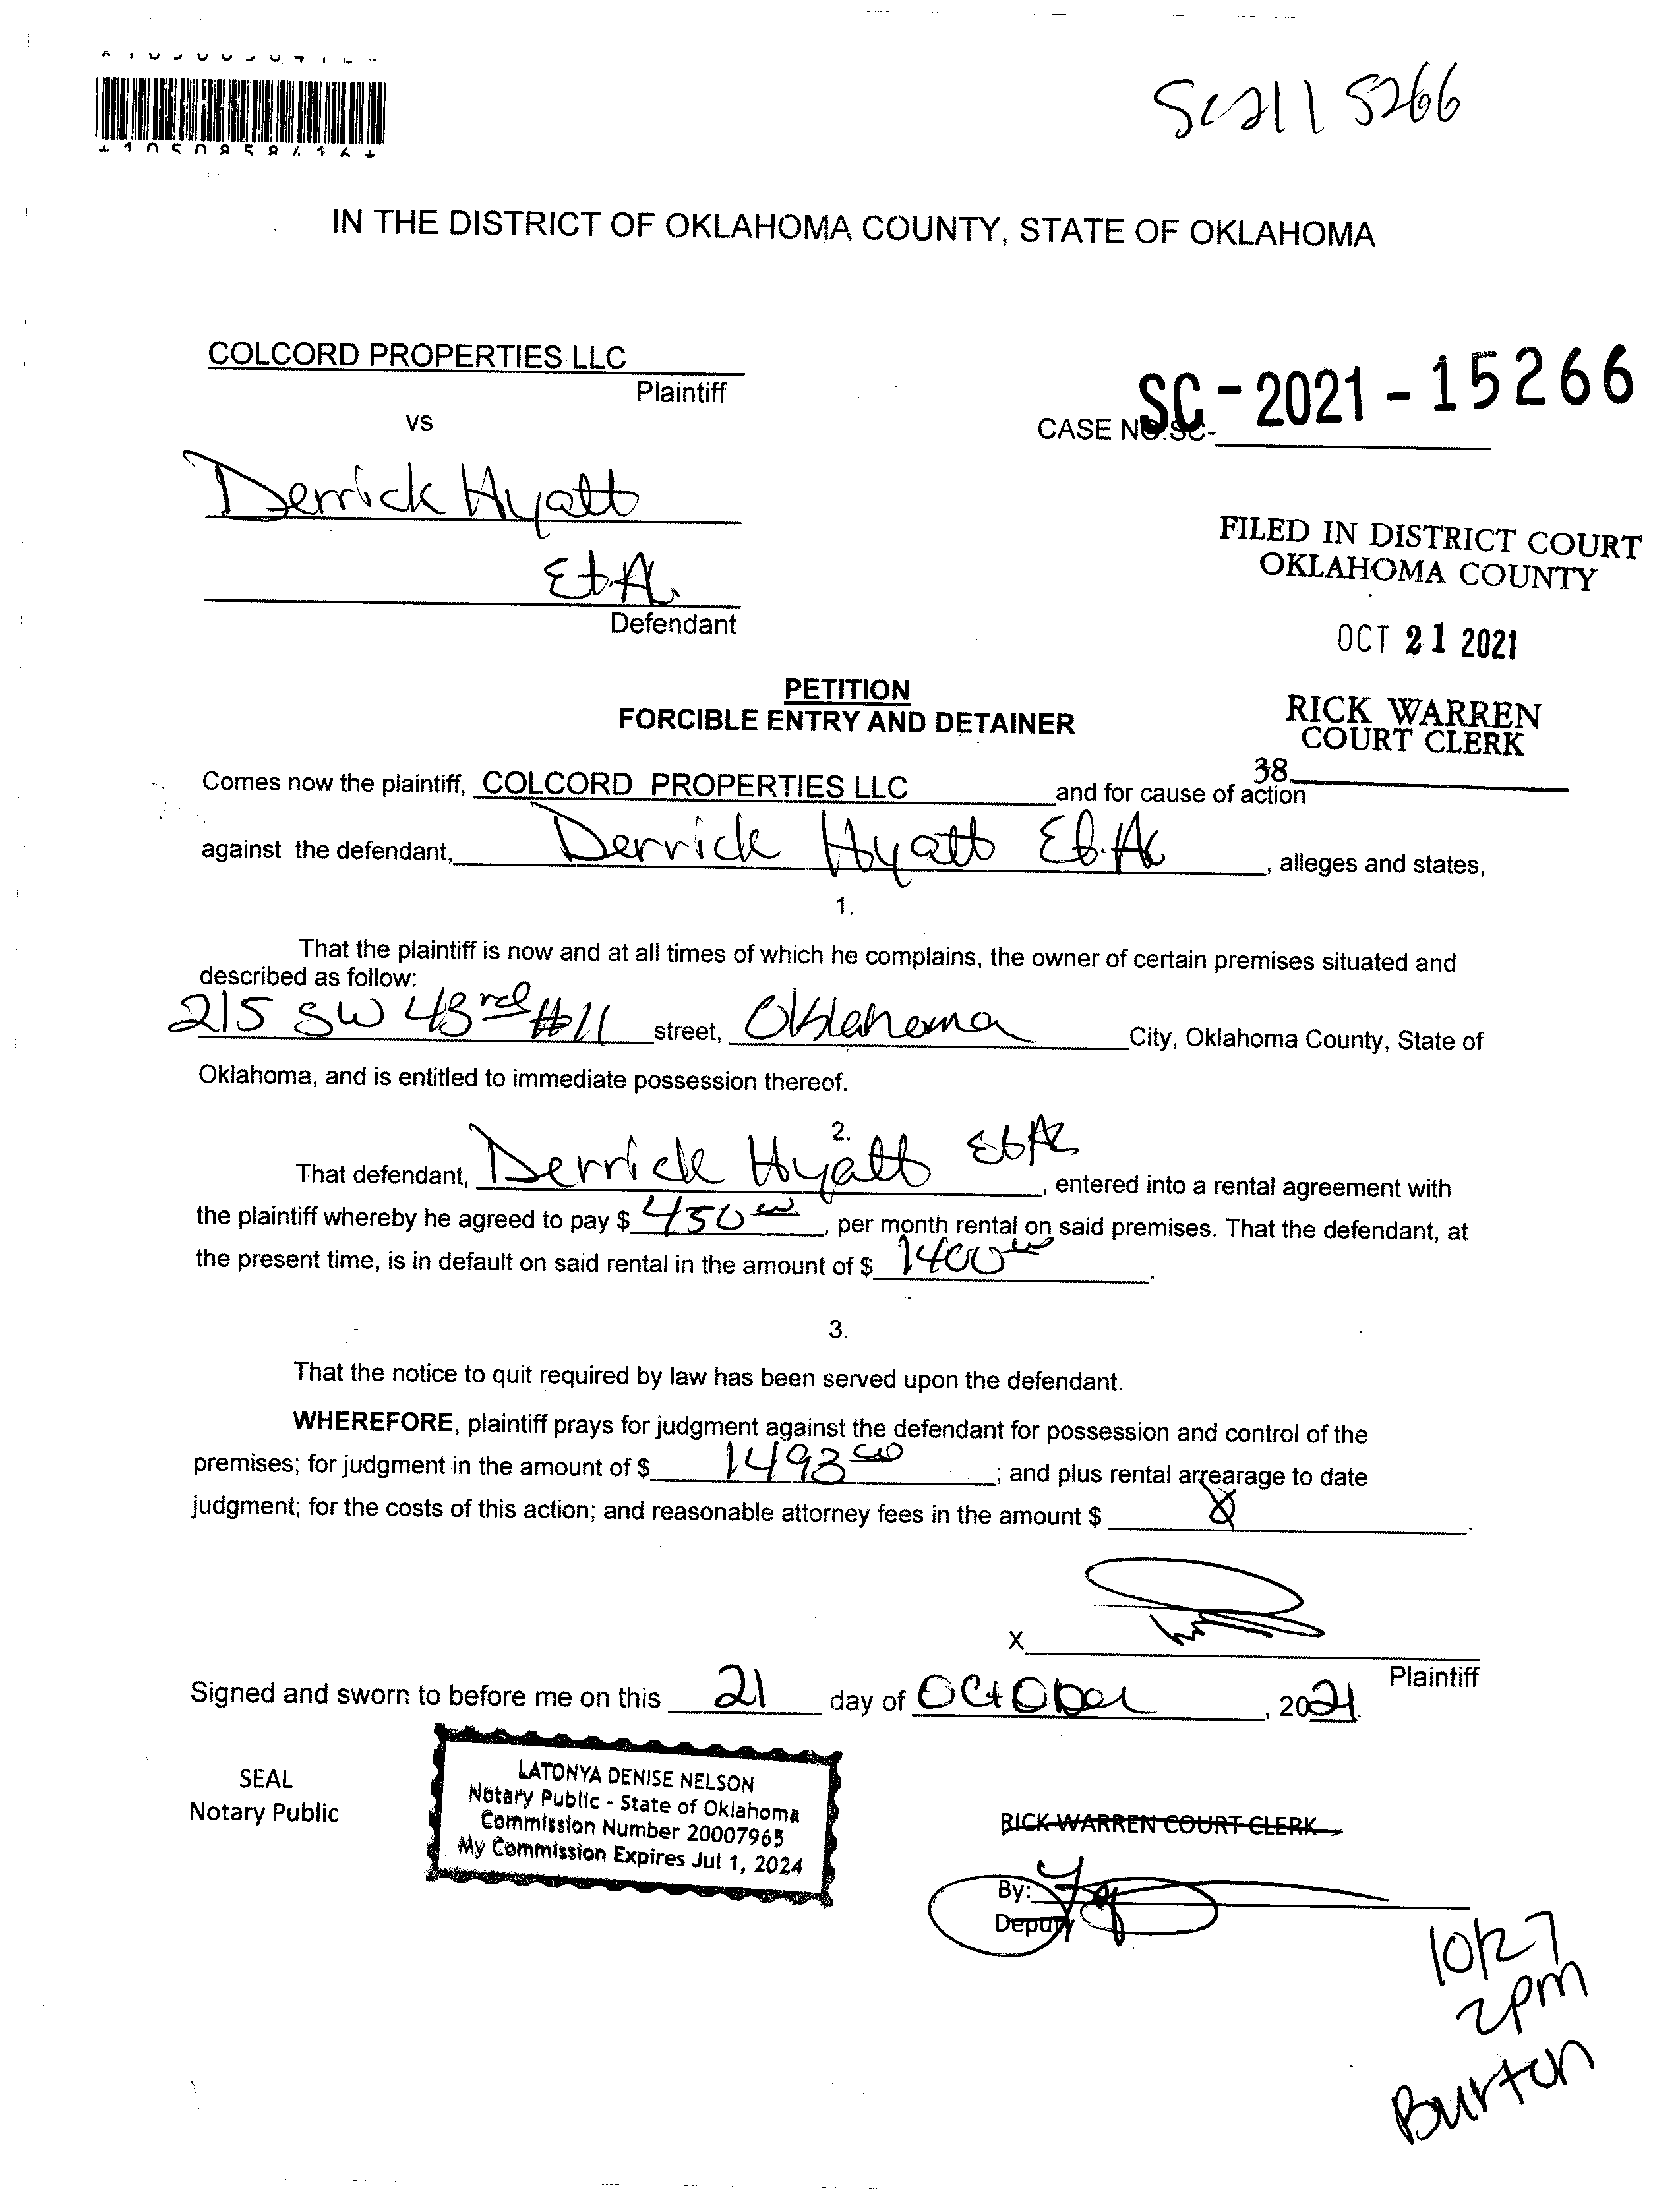 SC211 5266
IN THE DISTRICT OF OKLAHOMA COUNTY, STATE OF OKLAHOMA
COLCORD PROPERTIES LLC
Plaintiff
vs
CASE NO.SC- SC-2021-15266
Derrick Hyatt
Et.Al.
Defendant
FILED IN DISTRICT COURT
OKLAHOMA COUNTY
OCT 21 2021
RICK WARREN
COURT CLERK
38
PETITION
FORCIBLE ENTRY AND DETAINER
Comes now the plaintiff, COLCORD PROPERTIES LLC and for cause of action
against the defendant, Derrick Hyatt Et.Al , alleges and states,
1.
That the plaintiff is now and at all times of which he complains, the owner of certain premises situated and
described as follow:
215 SW 43rd #11 street, Oklahoma City, Oklahoma County, State of
Oklahoma, and is entitled to immediate possession thereof.
2.
That defendant, Derrick Hyatt Et Al , entered into a rental agreement with
the plaintiff whereby he agreed to pay $ 450 00 , per month rental on said premises. That the defendant, at
the present time, is in default on said rental in the amount of $ 1400 00 .
3.
That the notice to quit required by law has been served upon the defendant.
WHEREFORE, plaintiff prays for judgment against the defendant for possession and control of the
premises; for judgment in the amount of $ 1493 00 ; and plus rental arrearage to date
judgment; for the costs of this action; and reasonable attorney fees in the amount $ .
X
Plaintiff
Signed and sworn to before me on this 21 day of October , 2021.
SEAL
Notary Public
LATONYA DENISE NELSON
Notary Public - State of Oklahoma
Commission Number 20007965
My Commission Expires Jul 1, 2024
RICK WARREN COURT CLERK
By:
Deputy
10/27
2pm
Burton